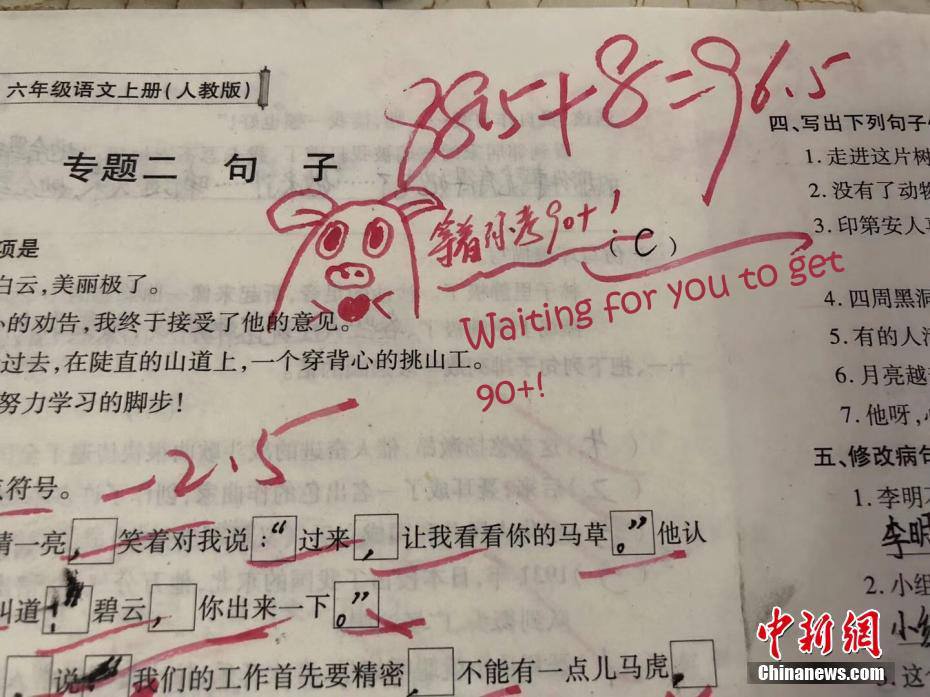 六年级语文上册(人教版)
88.5+8=96.5
专题二 句子
等着你考90+!
(C)
Waiting for you to get
90+!
项是
白云,美丽极了
的劝告,我终于接受了他的意见。
过去,在陡直的山道上,一个穿背心的挑山工。
努力学习的脚步!
-2.5
符号。
睛一亮,笑着对我说:“过来,让我看看你的马草。”他认
叫道:“碧云,你出来一下。”
说:“我们的工作首先要精密,不能有一点儿马虎,
四、写出下列句子
1.走进这片树
2.没有了动物
3.印第安人
4.四周黑洞
5.有的人
6.月亮越
7.他呀,
五、修改病句
1.李明
李明
2.小组
小组
3.这
中新网
Chinanews.com